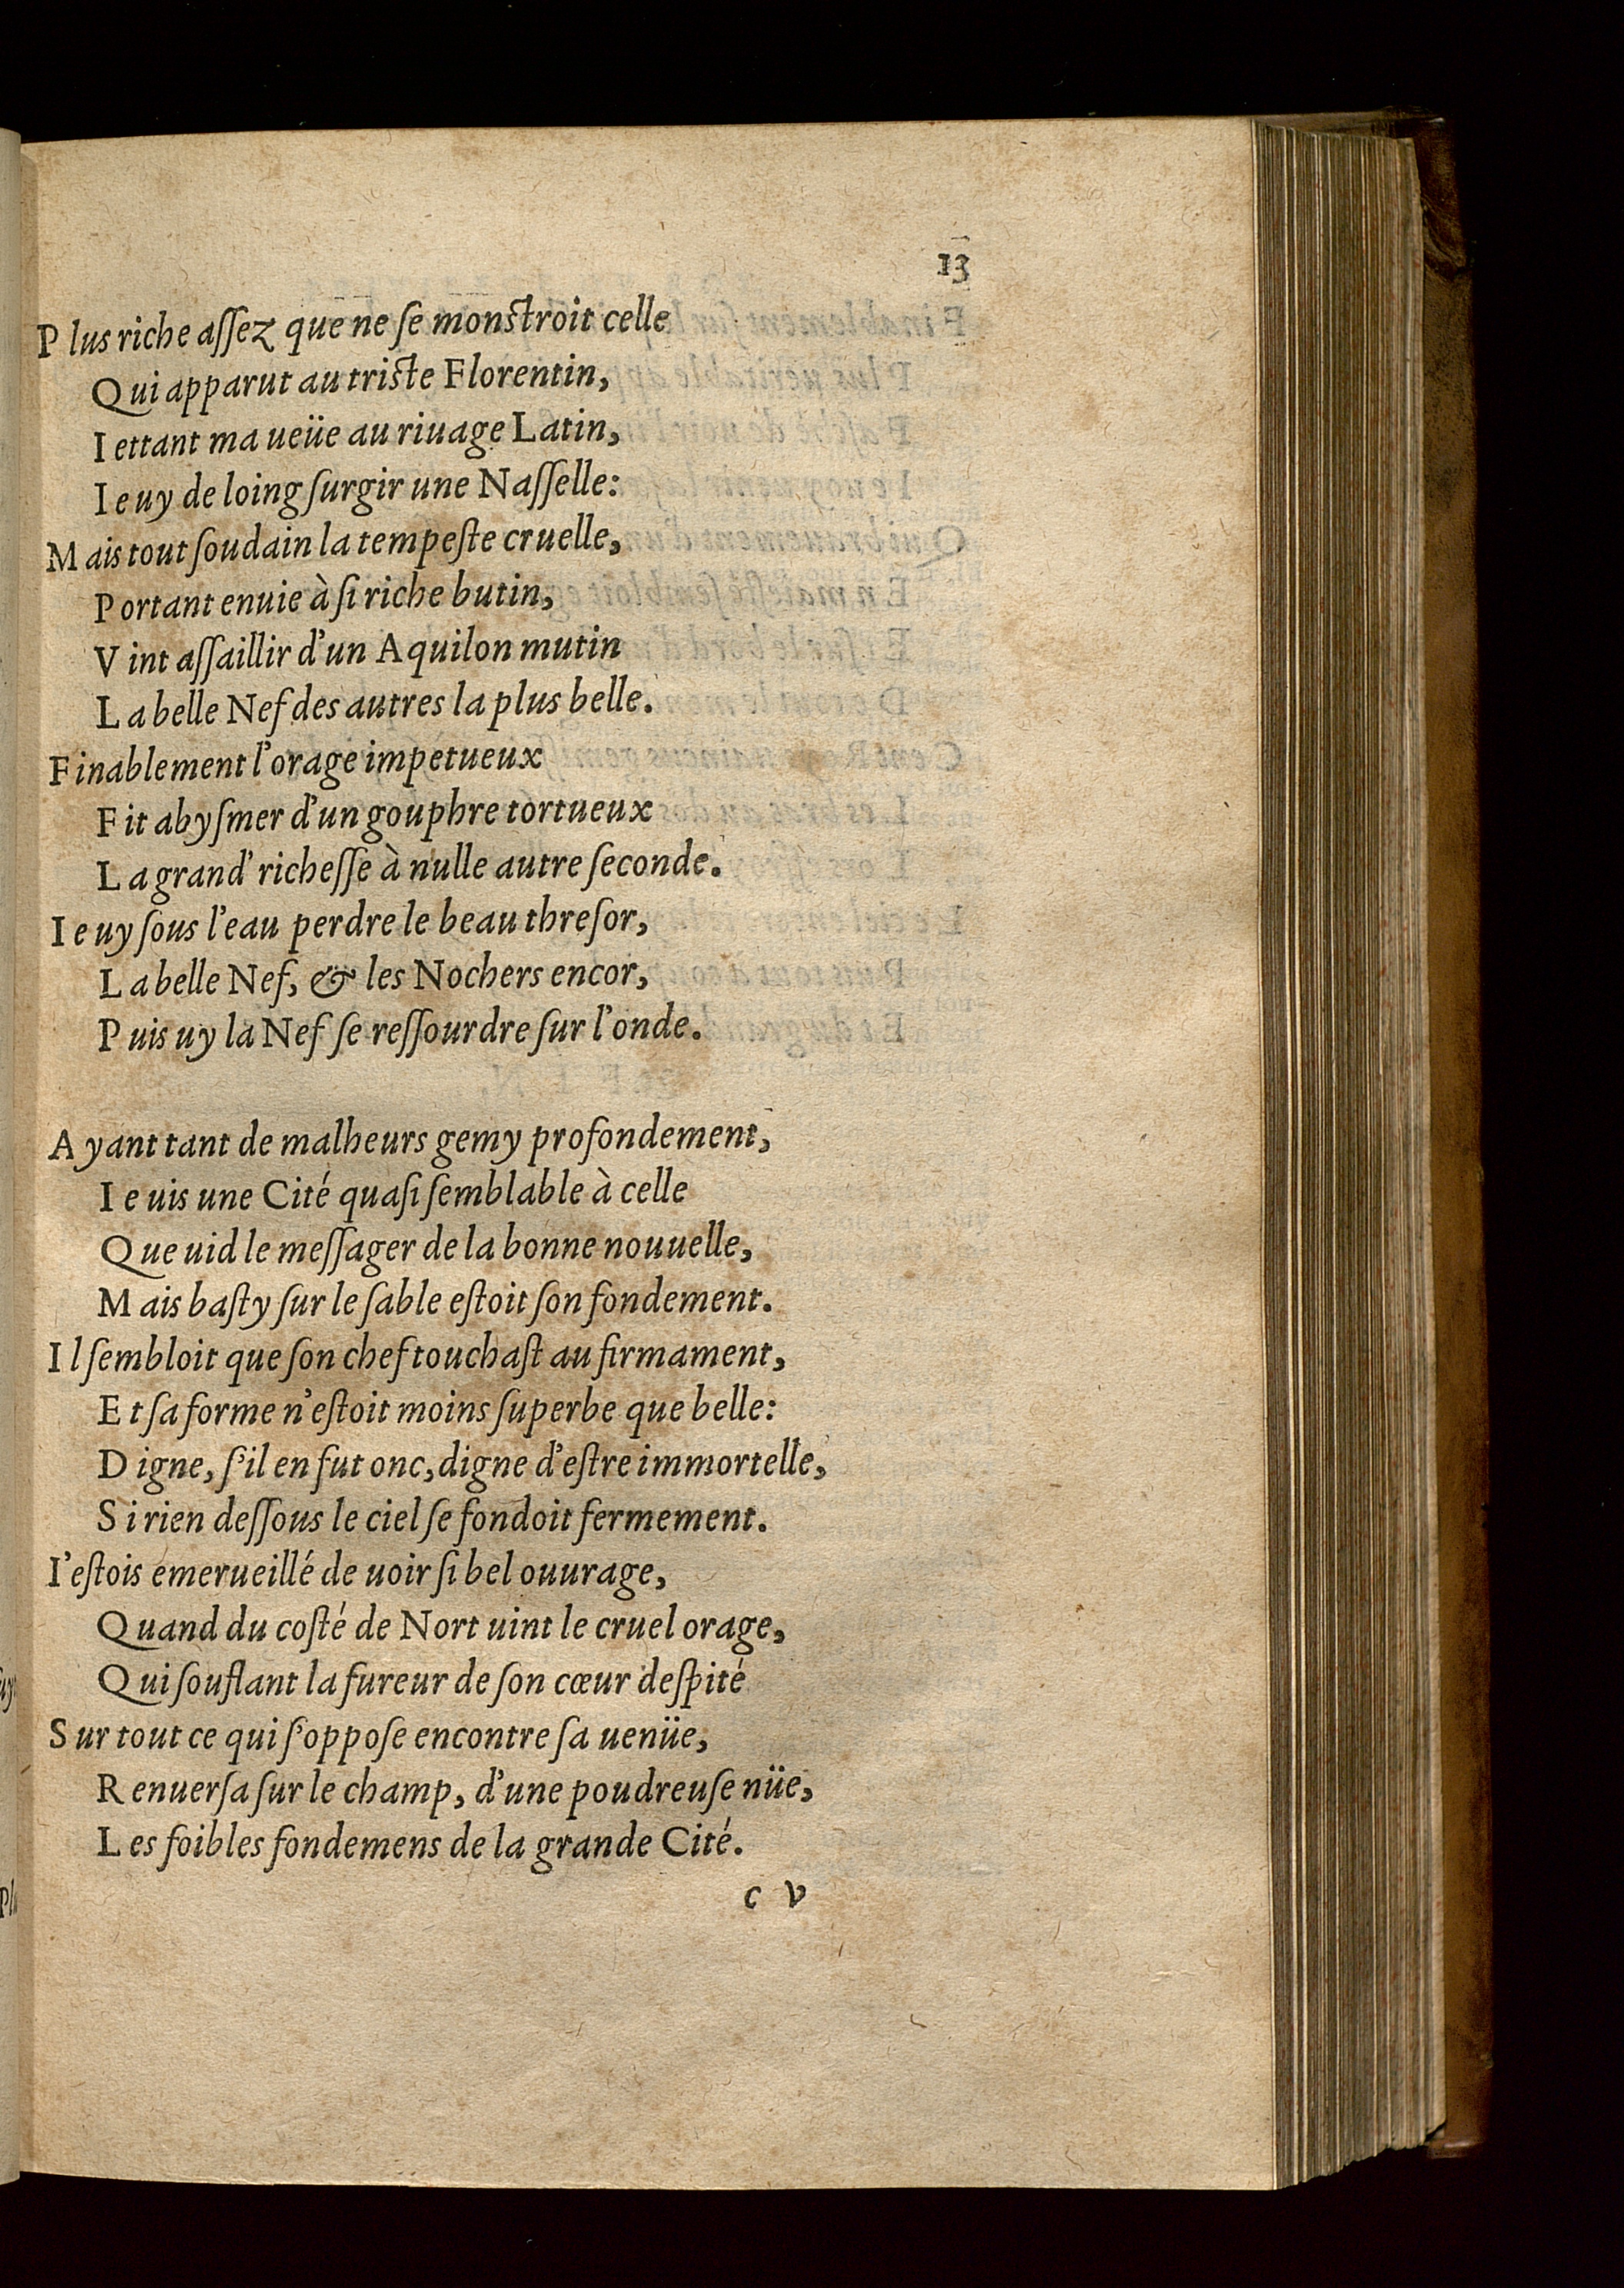 13
Plus riche aſſez que ne ſe monſtroit celle
Qui apparut au triſte Florentin,
Iettant ma ueüe au riuage Latin,
Ie uy de loing ſurgir une Naſſelle:
Mais tout ſoudain la tempeſte cruelle,
Portant enuie à ſi riche butin,
Vint aſſaillir d'un Aquilon mutin
La belle Nef des autres la plus belle.
Finablement l'orage impetueux
Fit abyſmer d'un gouphre tortueux
La grand' richeſſe à nulle autre ſeconde.
Ie uy ſous l'eau perdre le beau threſor,
La belle Nef, & les Nochers encor,
Puis uy la Nef ſe reſſourdre ſur l'onde.
Ayant tant de malheurs gemy profondement,
Ie uis une Cité quaſi ſemblable à celle
Que uid le meſſager de la bonne nouuelle,
Mais baſty ſur le ſable eſtoit ſon fondement.
Il ſembloit que ſon chef touchaſt au firmament,
Et ſa forme n'eſtoit moins ſuperbe que belle:
Digne, ſ'il en fut onc, digne d'eſtre immortelle,
Si rien deſſous le ciel ſe fondoit fermement.
I'eſtois émerueillé de uoir ſi bel ouurage,
Quand du coſté de Nort uint le cruel orage,
Qui ſouflant la fureur de ſon cœur deſpité
Sur tout ce qui ſ'oppoſe encontre ſa uenüe,
Renuerſa ſur le champ, d'une poudreuſe nüe,
Les foibles fondemens de la grande Cité.
c v